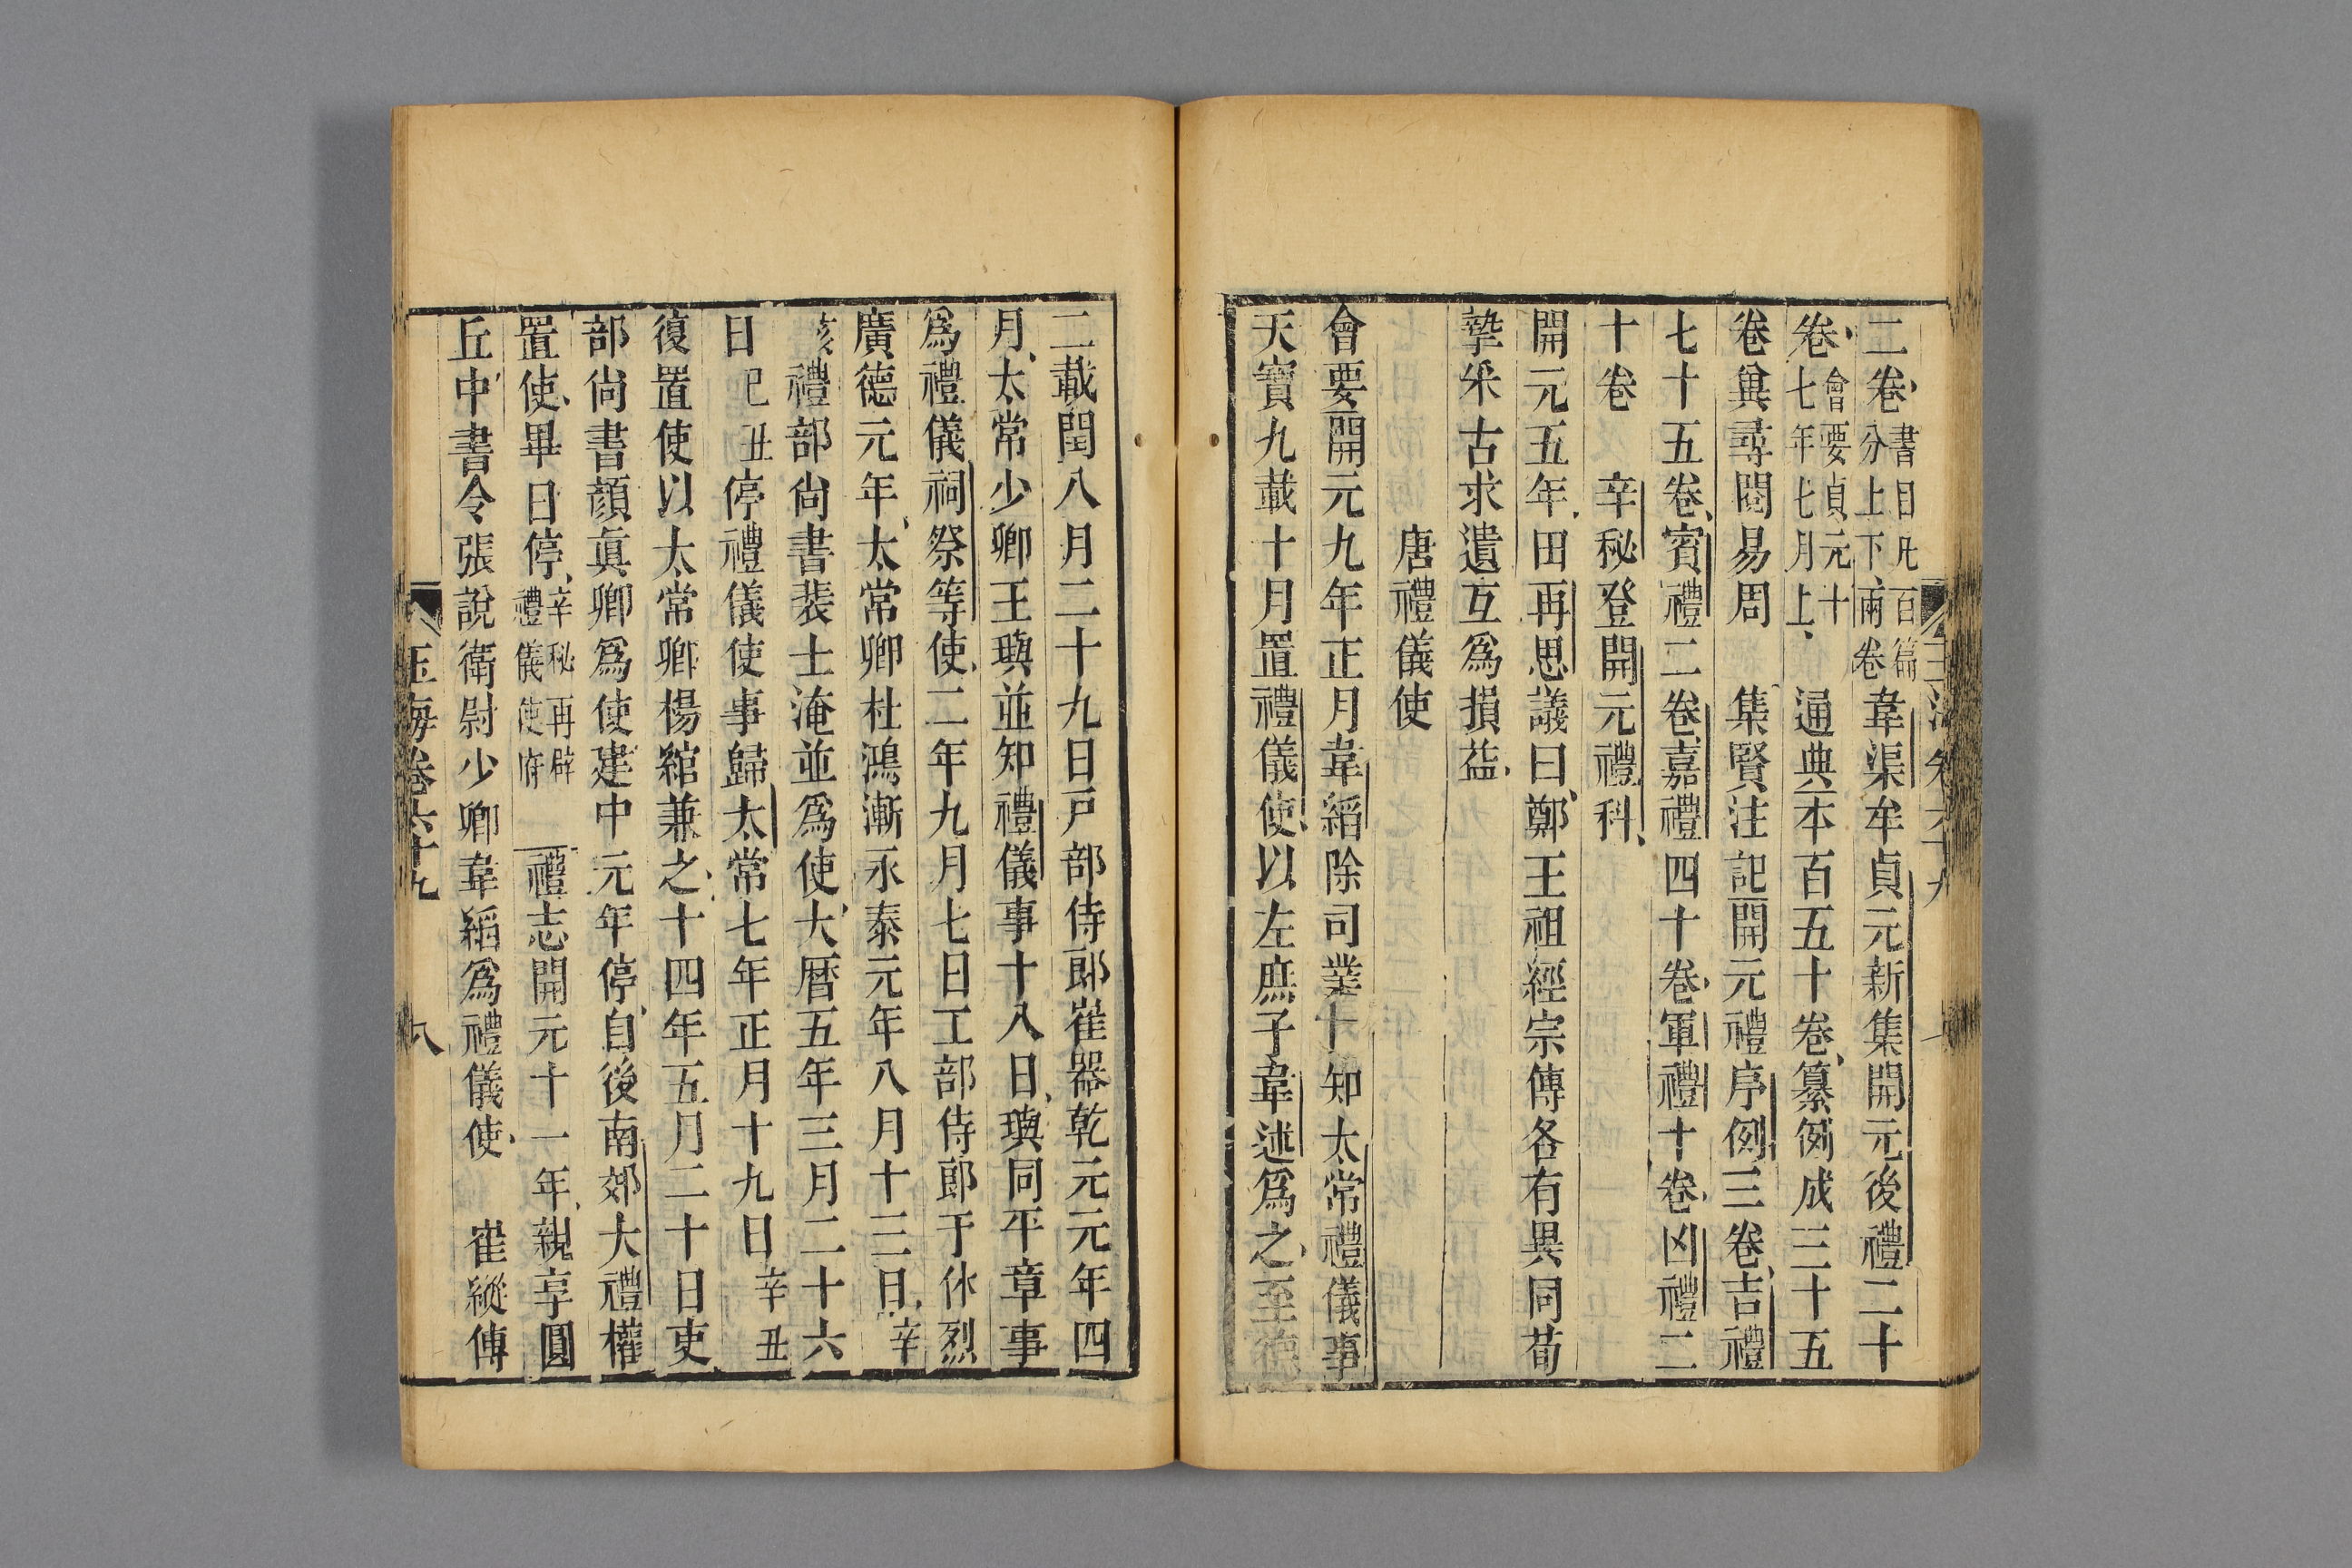 二卷書目凡百篇分上下兩卷韋渠牟貞元新集開元後禮二十
卷會要貞元十七年七月上通典本百五十卷纂例成三十五
卷䢖尋閱易周 集賢注記開元禮序例三卷吉禮
七十五卷賓禮二卷嘉禮四十卷軍禮十卷凶禮二
十卷 辛秘登開元禮科
開元五年田再思議曰鄭王祖經宗傳各有異同荀
摯采古求遺互爲損益
唐禮儀使
會要開元九年正月韋縚除司業 知太常禮儀事
天寶九載十月置禮儀使以左庶子韋述爲之至德
二載閏八月二十九日戸部侍郎崔器乾元元年四
月太常少卿王璵並知禮儀事十八日璵同平章事
爲禮儀祠祭等使二年九月七日工部侍郎于休烈
廣德元年太常卿杜鴻漸永泰元年八月十三日辛
亥禮部尚書裴士淹並爲使大曆五年三月二十六
日己丑停禮儀使事歸太常七年正月十九日辛丑
復置使以太常卿楊綰兼之十四年五月二十日吏
部尚書顏眞卿爲使建中元年停自後南郊大禮權
置使畢日停辛秘再辟禮儀使府 禮志開元十一年親享圓
丘中書令張說衛尉少卿韋縚爲禮儀使 崔縱傳
玉海卷六十九 八